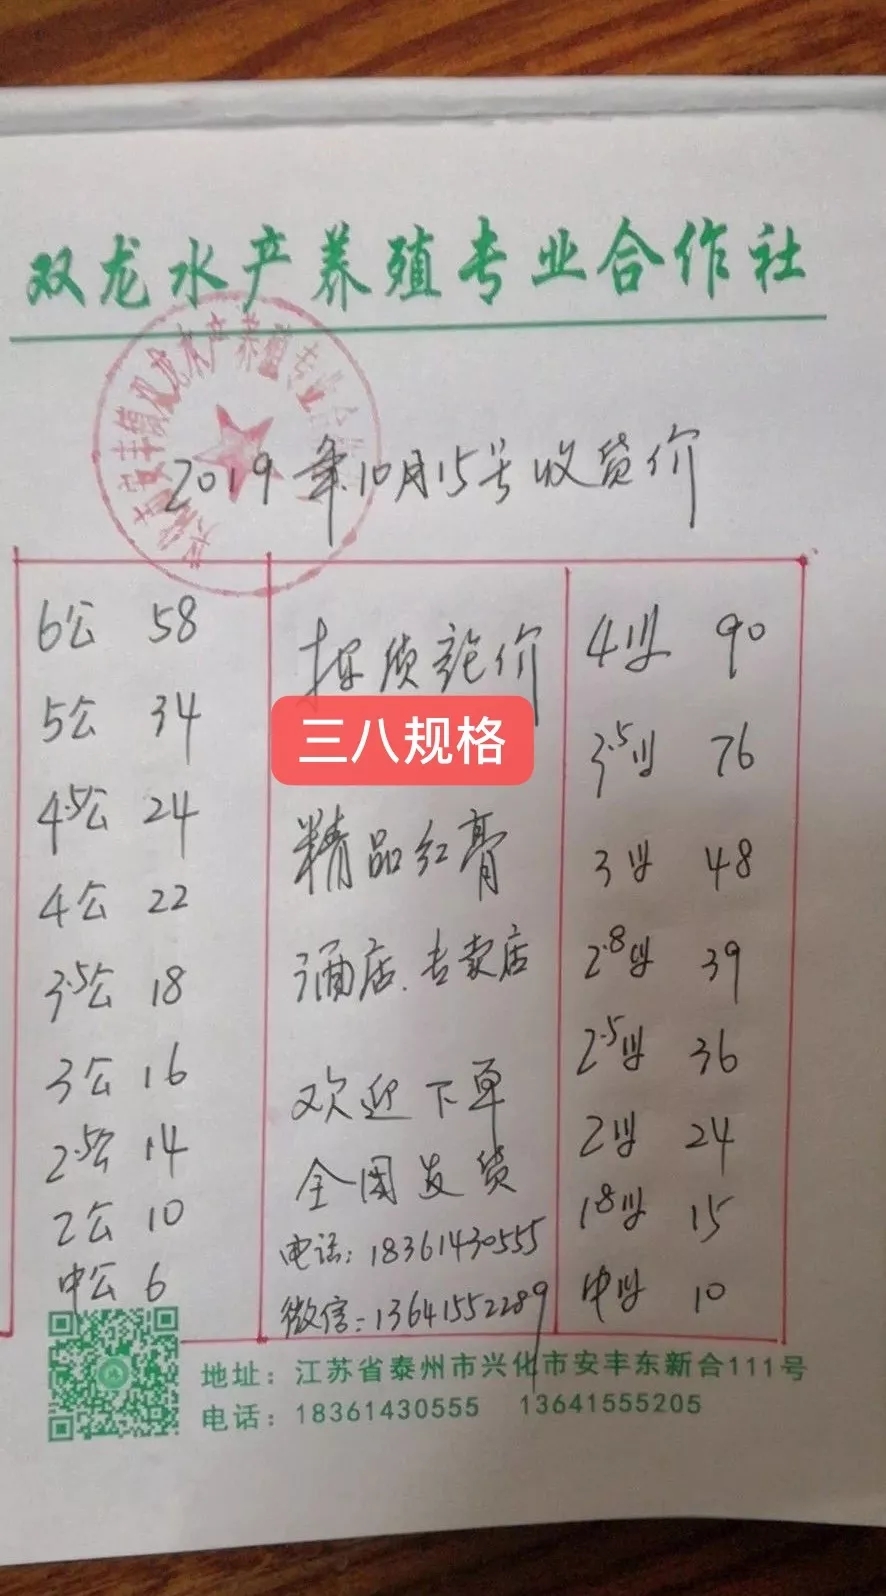 双龙水产养殖专业合作社
2019年10月15号收货价
6公 58
5公 34
4.5公 24
4公 22
3.5公 18
3公 16
2.5公 14
2公 10
中公 6
按质论价
三八规格
精品红膏
酒店、专卖店
欢迎下单
全国发货
电话：18361430555
微信：13641552289
4母 90
3.5母 76
3母 48
2.8母 39
2.5母 36
2母 24
1.8母 15
中母 10
地址：江苏省泰州市兴化市安丰东新合111号
电话：18361430555 13641555205